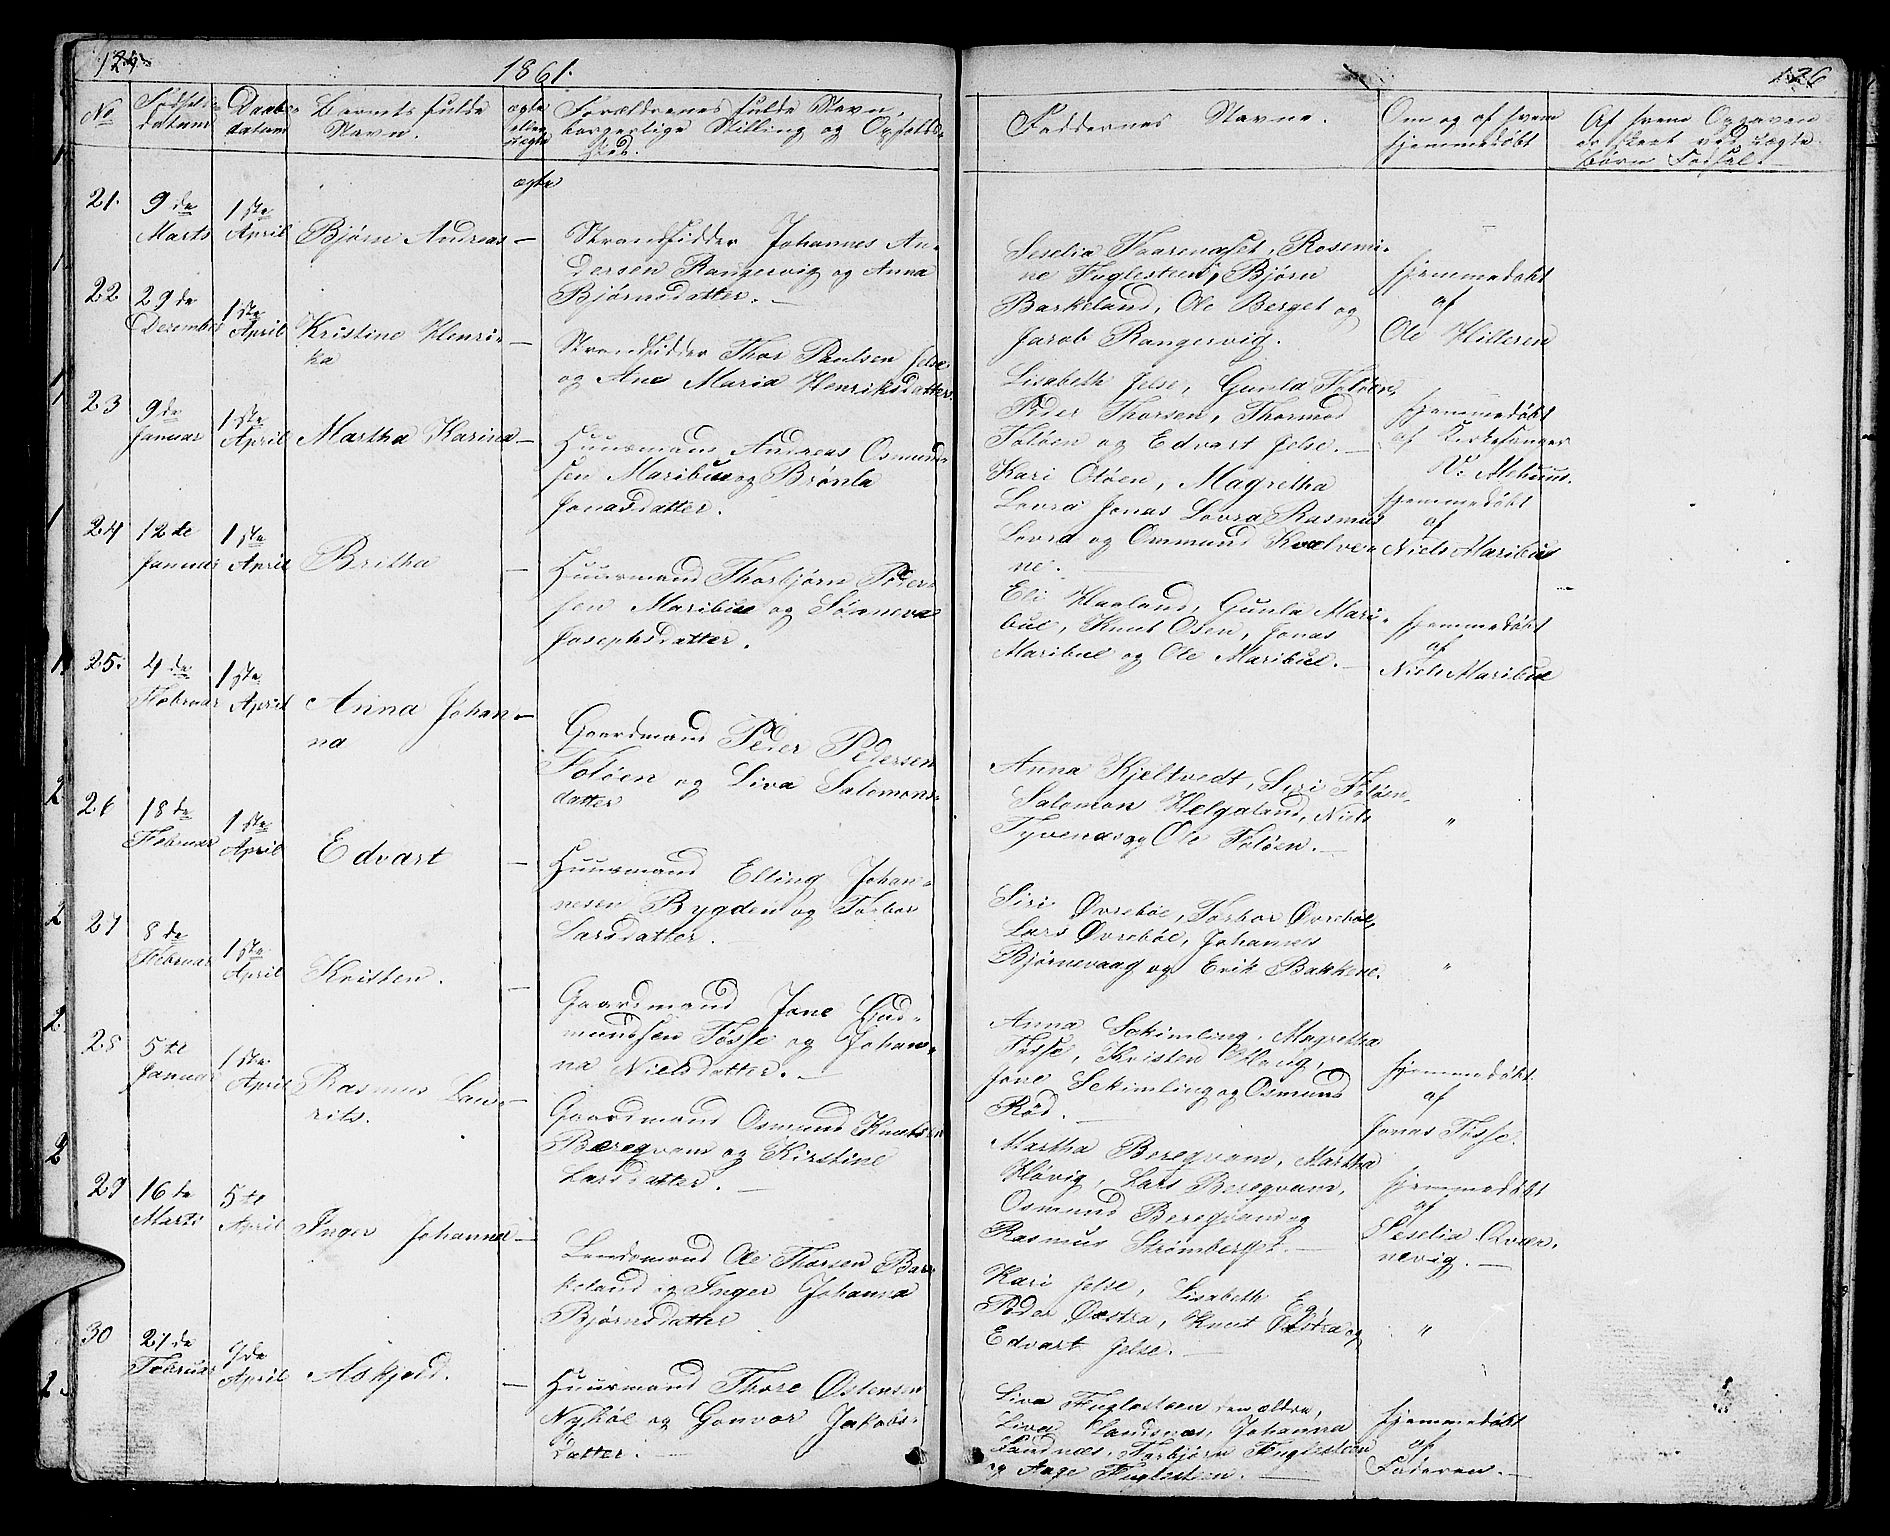 125.
1861.
126
No
Fødsels-
datum
Daabs-
datum
Barnets fulde
Navn.
ægte
eller
uægte
Forældrenes fulde Navn,
borgerlige Stilling og Opholds-
sted.
Faddernes Navne.
Om og af hvem
hjemmedøbt
Af hvem Opgaven
er skeet ved uægte
Børns Fødsel.
ægte
21.
9de
Marts
1ste
April
Bjørn Andreas —
Strandsidder Johannes An-
dersen Rangervig og Anna
Bjørnsdatter. —
Seselia Kaarenæset, Rosemi-
ne Fuglesteen, Bjørn
Barkeland, Ole Berget og
Jacob Rangervig.
Hjemmedøbt
af
Ole Hilleren
22
29de
Dezember
1ste
April
Kristine Henri- —
ka
Strandsidder Thor Paulsen Jelse
og Ane Maria Henriksdatter.
Lisabeth Jelse, Gunla Foløen,
Peder Thorsen, Thormod
Foløen og Edvart Jelse. —
Hjemmedøbt
af Kirkesanger
N. Mehuus.
23
9de
Januar
1ste
April
Martha Karina —
Huusmand Andreas Osmund-
sen Maribue og Brønla
Jonasdatter.
Kari Oløen, Magretha
Lovra Jonas Lovra Rasmus
Lovra og Ommund Kvalve-
ne. —
Hjemmedøbt
af
Niels Maribue
24
12de
Januar
1ste
April
Britha —
Huusmand Thorbjørn Peder-
sen Maribue og Sønneva
Josephsdatter.
Eli Haaland, Gunla Mari-
bue, Knut Osen, Jonas
Maribue og Ole Maribue. —
Hjemmedøbt
af
Niels Maribue
25.
4de
Februar
1ste
April
Anna Johan- —
na
Gaardmand Peder Pedersen
Foløen og Liva Salomons-
datter
Anna Kjeltvedt, Siri Foløen,
Salomon Helgaland, Niels
Tyvenæs og Ole Foløen. —
"
26
18de
Februar
1ste
April
Edvart —
Huusmand Elling Johan-
nesen Bygden og Torbor
Larsdatter. —
Siri Øvrebøe, Torbor Øvrebøe,
Lars Øvrebøe, Johannes
Bjørnevaag og Erik Bakkene.
"
27
8de
Februar
1ste
April
Kristen. —
Gaardmand Jone Gud-
mundsen Tøsse og Johan-
na Nielsdatter. —
Anna Sekimling, Magretha
Tøsse, Kristen Haug,
Jone Sekimling og Osmund
Rød. —
Hjemmedøbt
af
Jonas Tøsse.
28
5te
Januar
1ste
April
Rasmus Lau- —
rits.
Gaardmand Osmund Knutsen
Beregvam og Kirstine
Larsdatter. —
Martha Beregvam, Martha
Kløvig, Lars Beregvam,
Osmund Beregvam og
Rasmus Strømberget. —
Hjemmedøbt
af
Seselia Qvær-
nevig. —
29
16de
Marts
5te
April
Inger Johanna —
Landsmand Ole Thorsen Bar-
keland og Inger Johanna
Bjørnsdatter
Kari Jelse, Lisabeth Eg,
Peder Østra, Knut Østra og
Edvart Jelse. —
"
30
27de
Februar
7de
April
Askjeld. —
Huusmand Thore Østensen
Nyhøl og Gonvor Jakobs-
datter. —
Liva Fuglesteen den ældre,
Liva Sandsnæs, Johanna
Sandnæs, Torbjørn Fuglesteen
og Aage Fuglesteen. —
Hjemmedøbt
af
Faderen. —